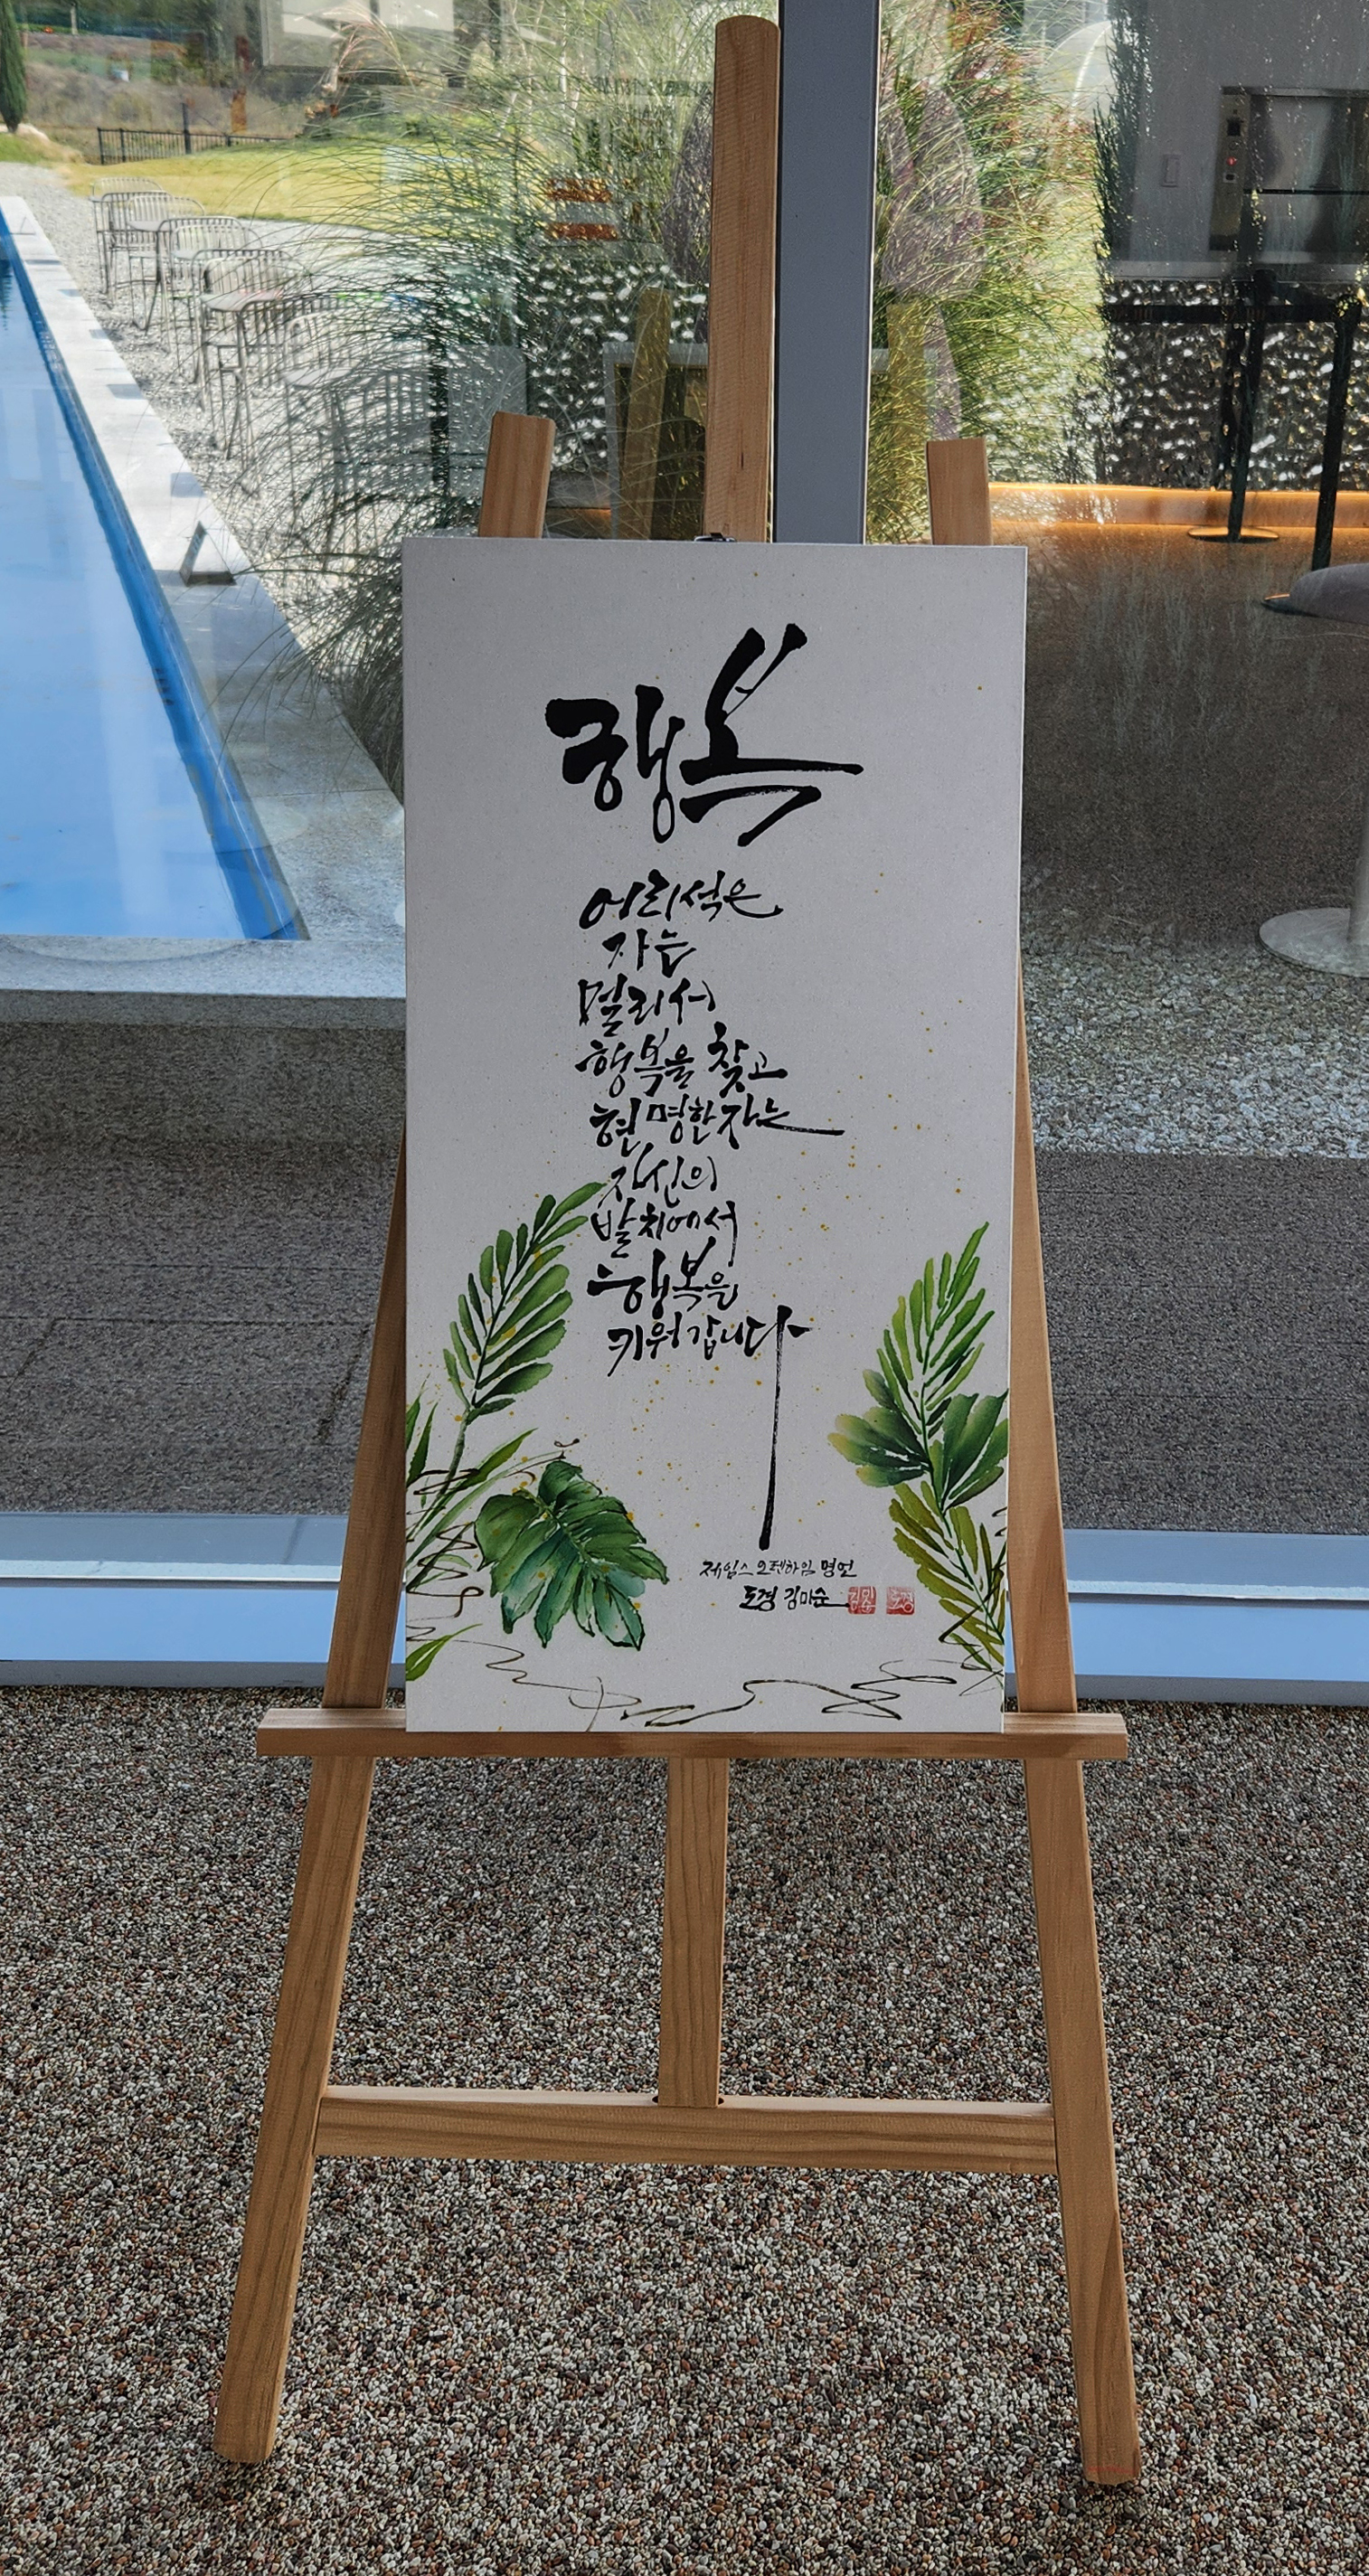 행복
어리석은
자는
멀리서
행복을 찾고
현명한 자는
자신의
발치에서
행복을
키워갑니다
제임스 오펜하임 명언
도경 김미순